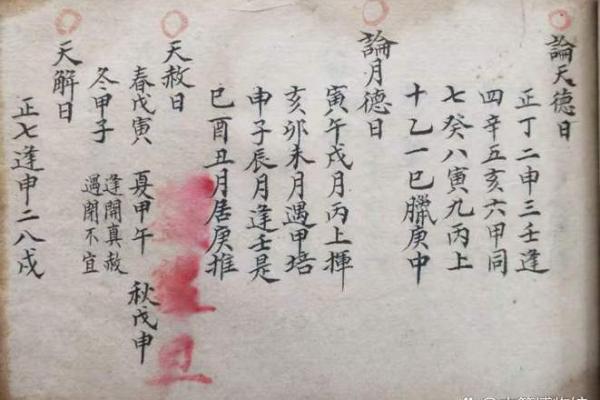 論天德日
正丁二申三壬逢
四辛五亥六甲同
七癸八寅九丙上
十乙一巳臘庚中
論月德日
寅午戌月丙上揮
亥卯未月遇甲培
申子辰月逢壬是
巳酉丑月居庚推
天赦日
春戊寅 夏甲午 秋戊申
冬甲子 逢開真赦
遇閉不宜
天解日
正七逢申二八戌